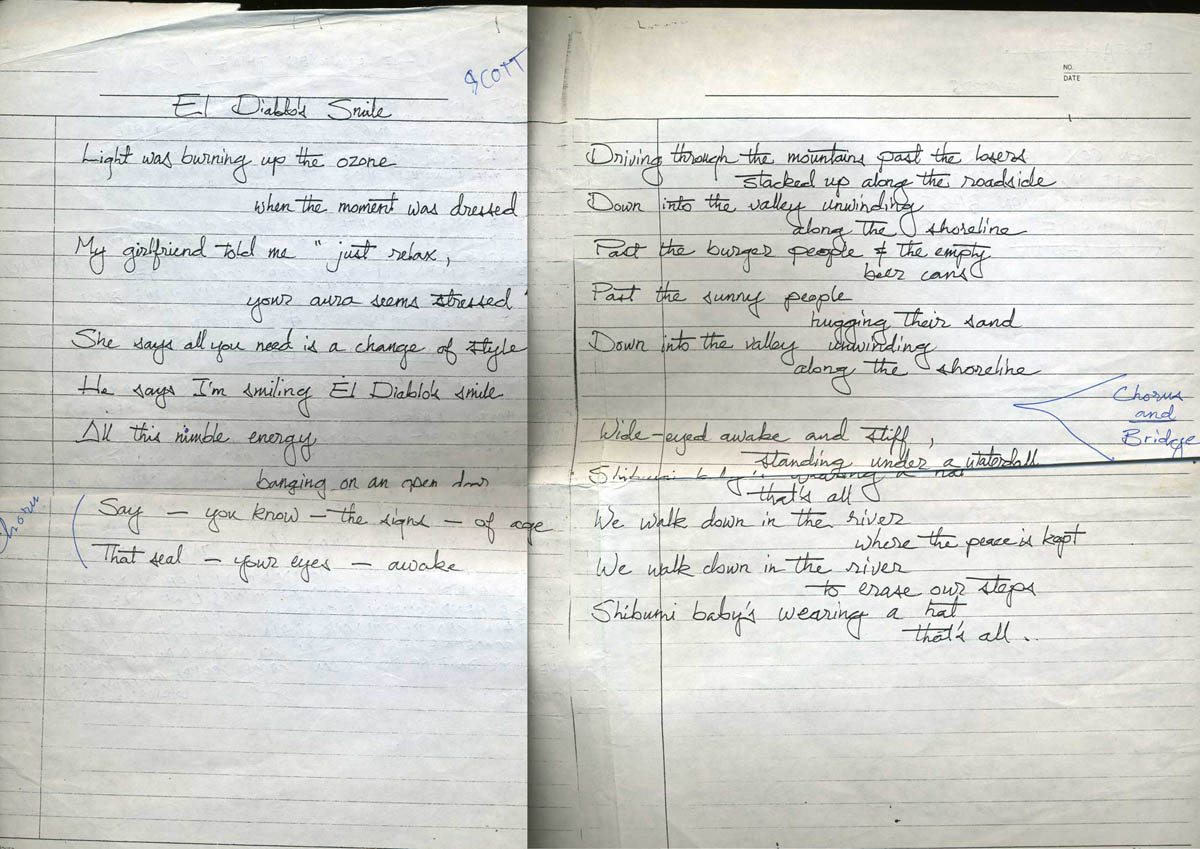 SCOTT
El Diablo's Smile
Light was burning up the ozone
when the moment was dressed
My girlfriend told me "just relax,
your aura seems stressed"
She says all you need is a change of style
He says I'm smiling El Diablo's smile
All this nimble energy
banging on an open door
Chorus
Say – you know – the signs – of age
That seal – your eyes – awake
NO.
DATE
Driving through the mountains past the losers
stacked up along the roadside
Down into the valley unwinding
along the shoreline
Past the burger people & the empty
beer cans
Past the sunny people
hugging their sand
Down into the valley unwinding
along the shoreline
Chorus
and
Bridge
Wide-eyed awake and stiff,
standing under a waterfall
Shibumi baby's wearing a hat
that's all
We walk down in the river
where the peace is kept
We walk down in the river
to erase our steps
Shibumi baby's wearing a hat
that's all..